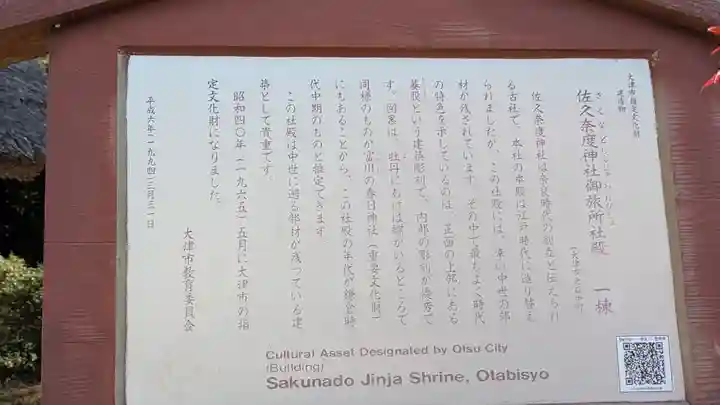 大津市指定文化財
建造物
さくなどじんじゃおたびしょ
佐久奈度神社御旅所社殿 一棟
佐久奈度神社は奈良時代の創建と伝えられ
る古社で、本社の本殿は江戸時代に造り替え
られましたが、この社殿には、古い中世の部
材が残されています。その中で最もよく時代
の特色を示しているのは、正面の上部にある
蟇股という建築彫刻で、内部の彫刻が優秀で
す。図案は、牡丹に
同様のものが富川の春日神社(重要文化財)
にもあることから、この社殿の年代が鎌倉時
代中期のものと推定できます
この社殿は中世に遡る部材が残っている建
築として貴重です。
昭和四〇年(一九六五)五月に大津市の指
定文化財になりました。
平成六年(一九九四)三月三一日
大津市教育委員会
Cultural Asset Designated by Otsu City
(Building)
Sakunado Jinja Shrine, Otabisyo